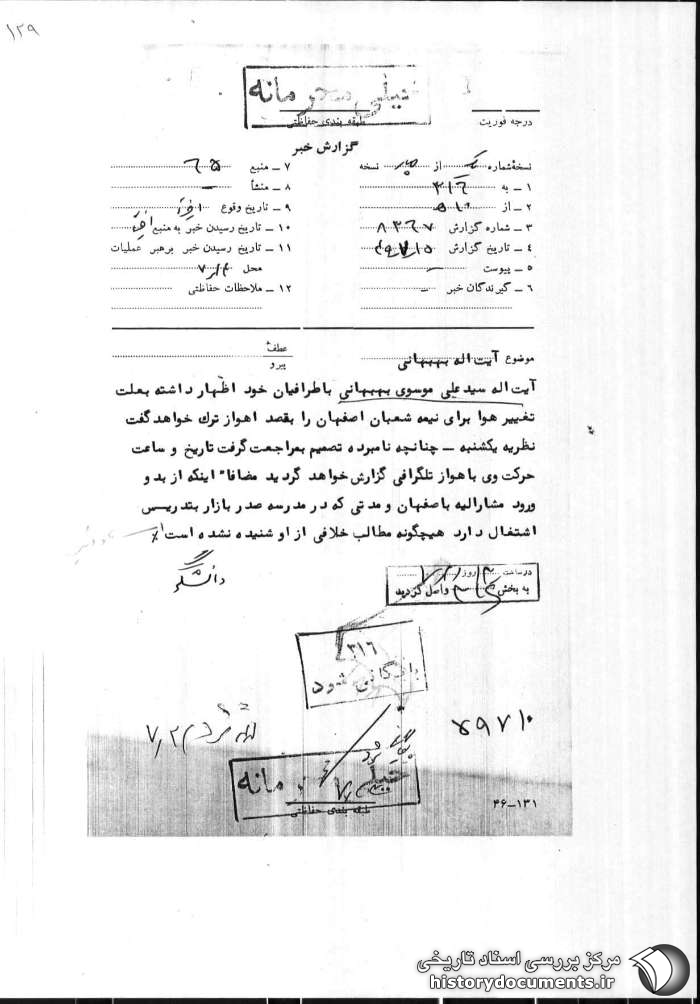 ۱۳۹
خیلی محرمانه
طبقه بندی حفاظتی
درجه فوریت
گزارش خبر
نسخهٔ شماره یک از نسخه
۱ ـ به ۳۱۶
۲ ـ از
۳ ـ شماره گزارش ۸۳۶۷
۴ ـ تاریخ گزارش
۵ ـ پیوست ـ
۶ ـ گیرندگان خبر ـ
۷ ـ منبع ۶۵
۸ ـ منشأ ـ
۹ ـ تاریخ وقوع اخیراً
۱۰ ـ تاریخ رسیدن خبر به منبع اخیراً
۱۱ ـ تاریخ رسیدن خبر برهبر عملیات
محل
۱۲ ـ ملاحظات حفاظتی
موضوع آیت اله بهبهانی
عطف
پیرو
آیت اله سید علی موسوی بهبهانی باطرافیان خود اظهار داشته بعلت
تغییر هوا برای نیمه شعبان اصفهان را بقصد اهواز ترک خواهد گفت
نظریه یکشنبه ـ چنانچه نامبرده تصمیم بمراجعت گرفت تاریخ و ساعت
حرکت وی با هواز تلگرافی گزارش خواهد گردید مضافاً اینکه از بدو
ورود مشارالیه باصفهان و مدتی که در مدرسه صدر بازار بتدریس
اشتغال دارد هیچگونه مطالب خلافی از او شنیده نشده است
در ساعت روز
به بخش ۳۱۶ واصل گردید
۳۱۶
بایگانی شود
۵۹۷۱۰
خیلی محرمانه
طبقه بندی حفاظتی
۴۶-۱۳۱
مرکز بررسی اسناد تاریخی
historydocuments.ir